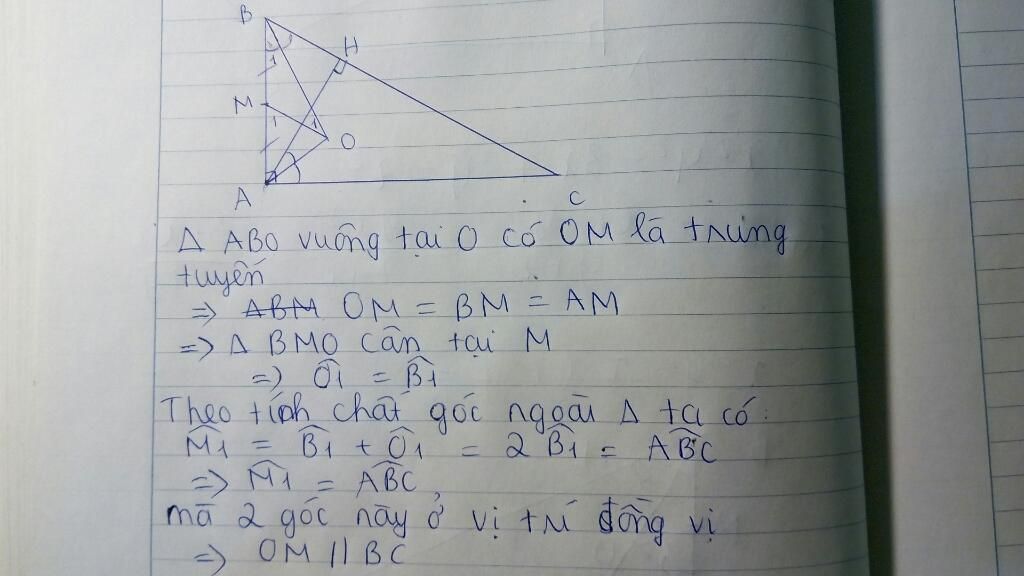 B
H
1
M
1
1
O
A
C
Δ ABO vuông tại O có OM là trung
tuyến
=> ~~ABM~~ OM = BM = AM
=> Δ BMO cân tại M
=> Ô1 = B̂1
Theo tính chất góc ngoài Δ ta có:
M̂1 = B̂1 + Ô1 = 2 B̂1 = AB̂C
=> M̂1 = AB̂C,
mà 2 góc này ở vị trí đồng vị
=> OM // BC